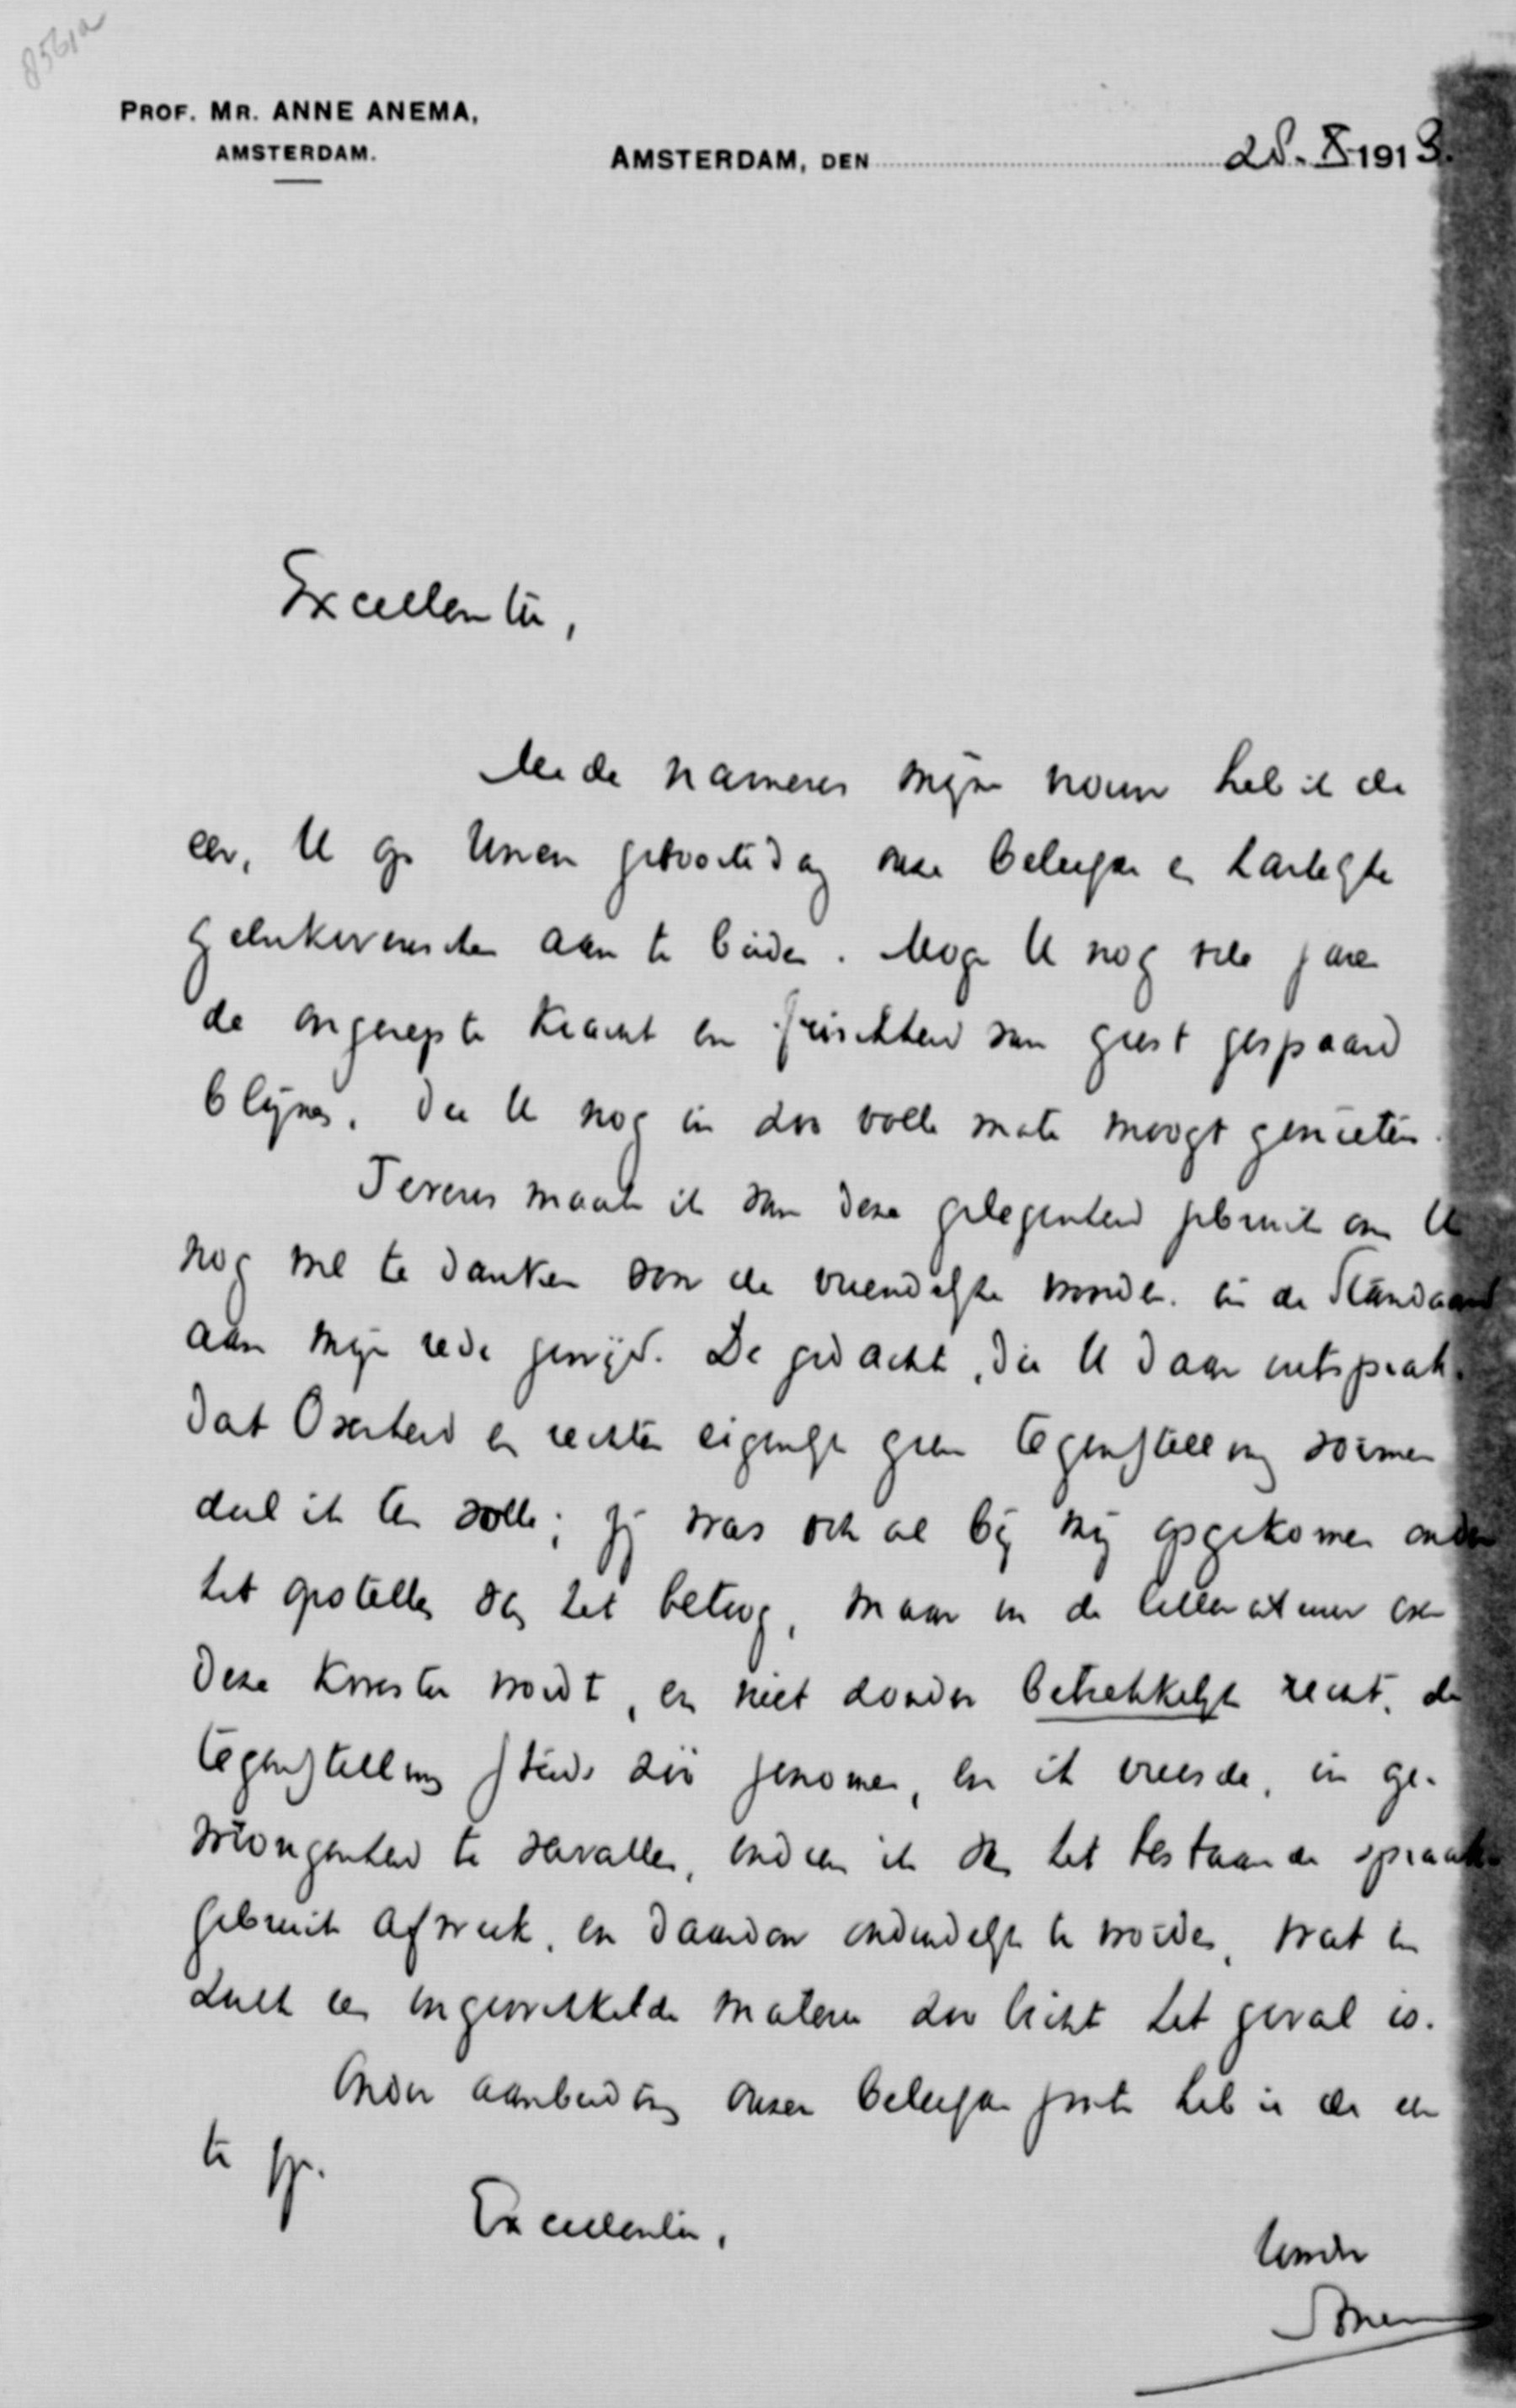 8561a
PROF. MR. ANNE ANEMA,
AMSTERDAM.
AMSTERDAM, DEN 28. X 1913.
Excellentie,
Mede namens mijne vrouw heb ik de
eer, U op Uwen geboortedag onze beleefde en hartelijke
gelukwenschen aan te bieden. Moge U nog vele jaren
de ongerepte kracht en frischheid van geest gespaard
blijven, die U nog in zoo volle mate moogt genieten.
Tevens maak ik van deze gelegenheid gebruik om U
nog wel te danken voor de vriendelijke woorden in de Standaard
aan mijn rede gewijd. De gedachte, die U daar uitsprak,
dat Overheid en rechter eigenlijk geen tegenstelling vormen
deel ik ten volle; zij was ook al bij mij opgekomen onder
het opstellen van het betoog, maar in de litteratuur over
deze kwestie wordt, en niet zonder betrekkelijk recht, de
tegenstelling steeds zóó genomen, en ik vreesde, in ge-
wrongenheid te vervallen, indien ik van het bestaande spraak-
gebruik afweek, en daardoor onduidelijk te worden, wat in
zulk een ingewikkelde materie zoo licht het geval is.
Onder aanbieding onzer beleefde groete heb ik de eer
te zijn.
Excellentie,
Uwe dr
Anema